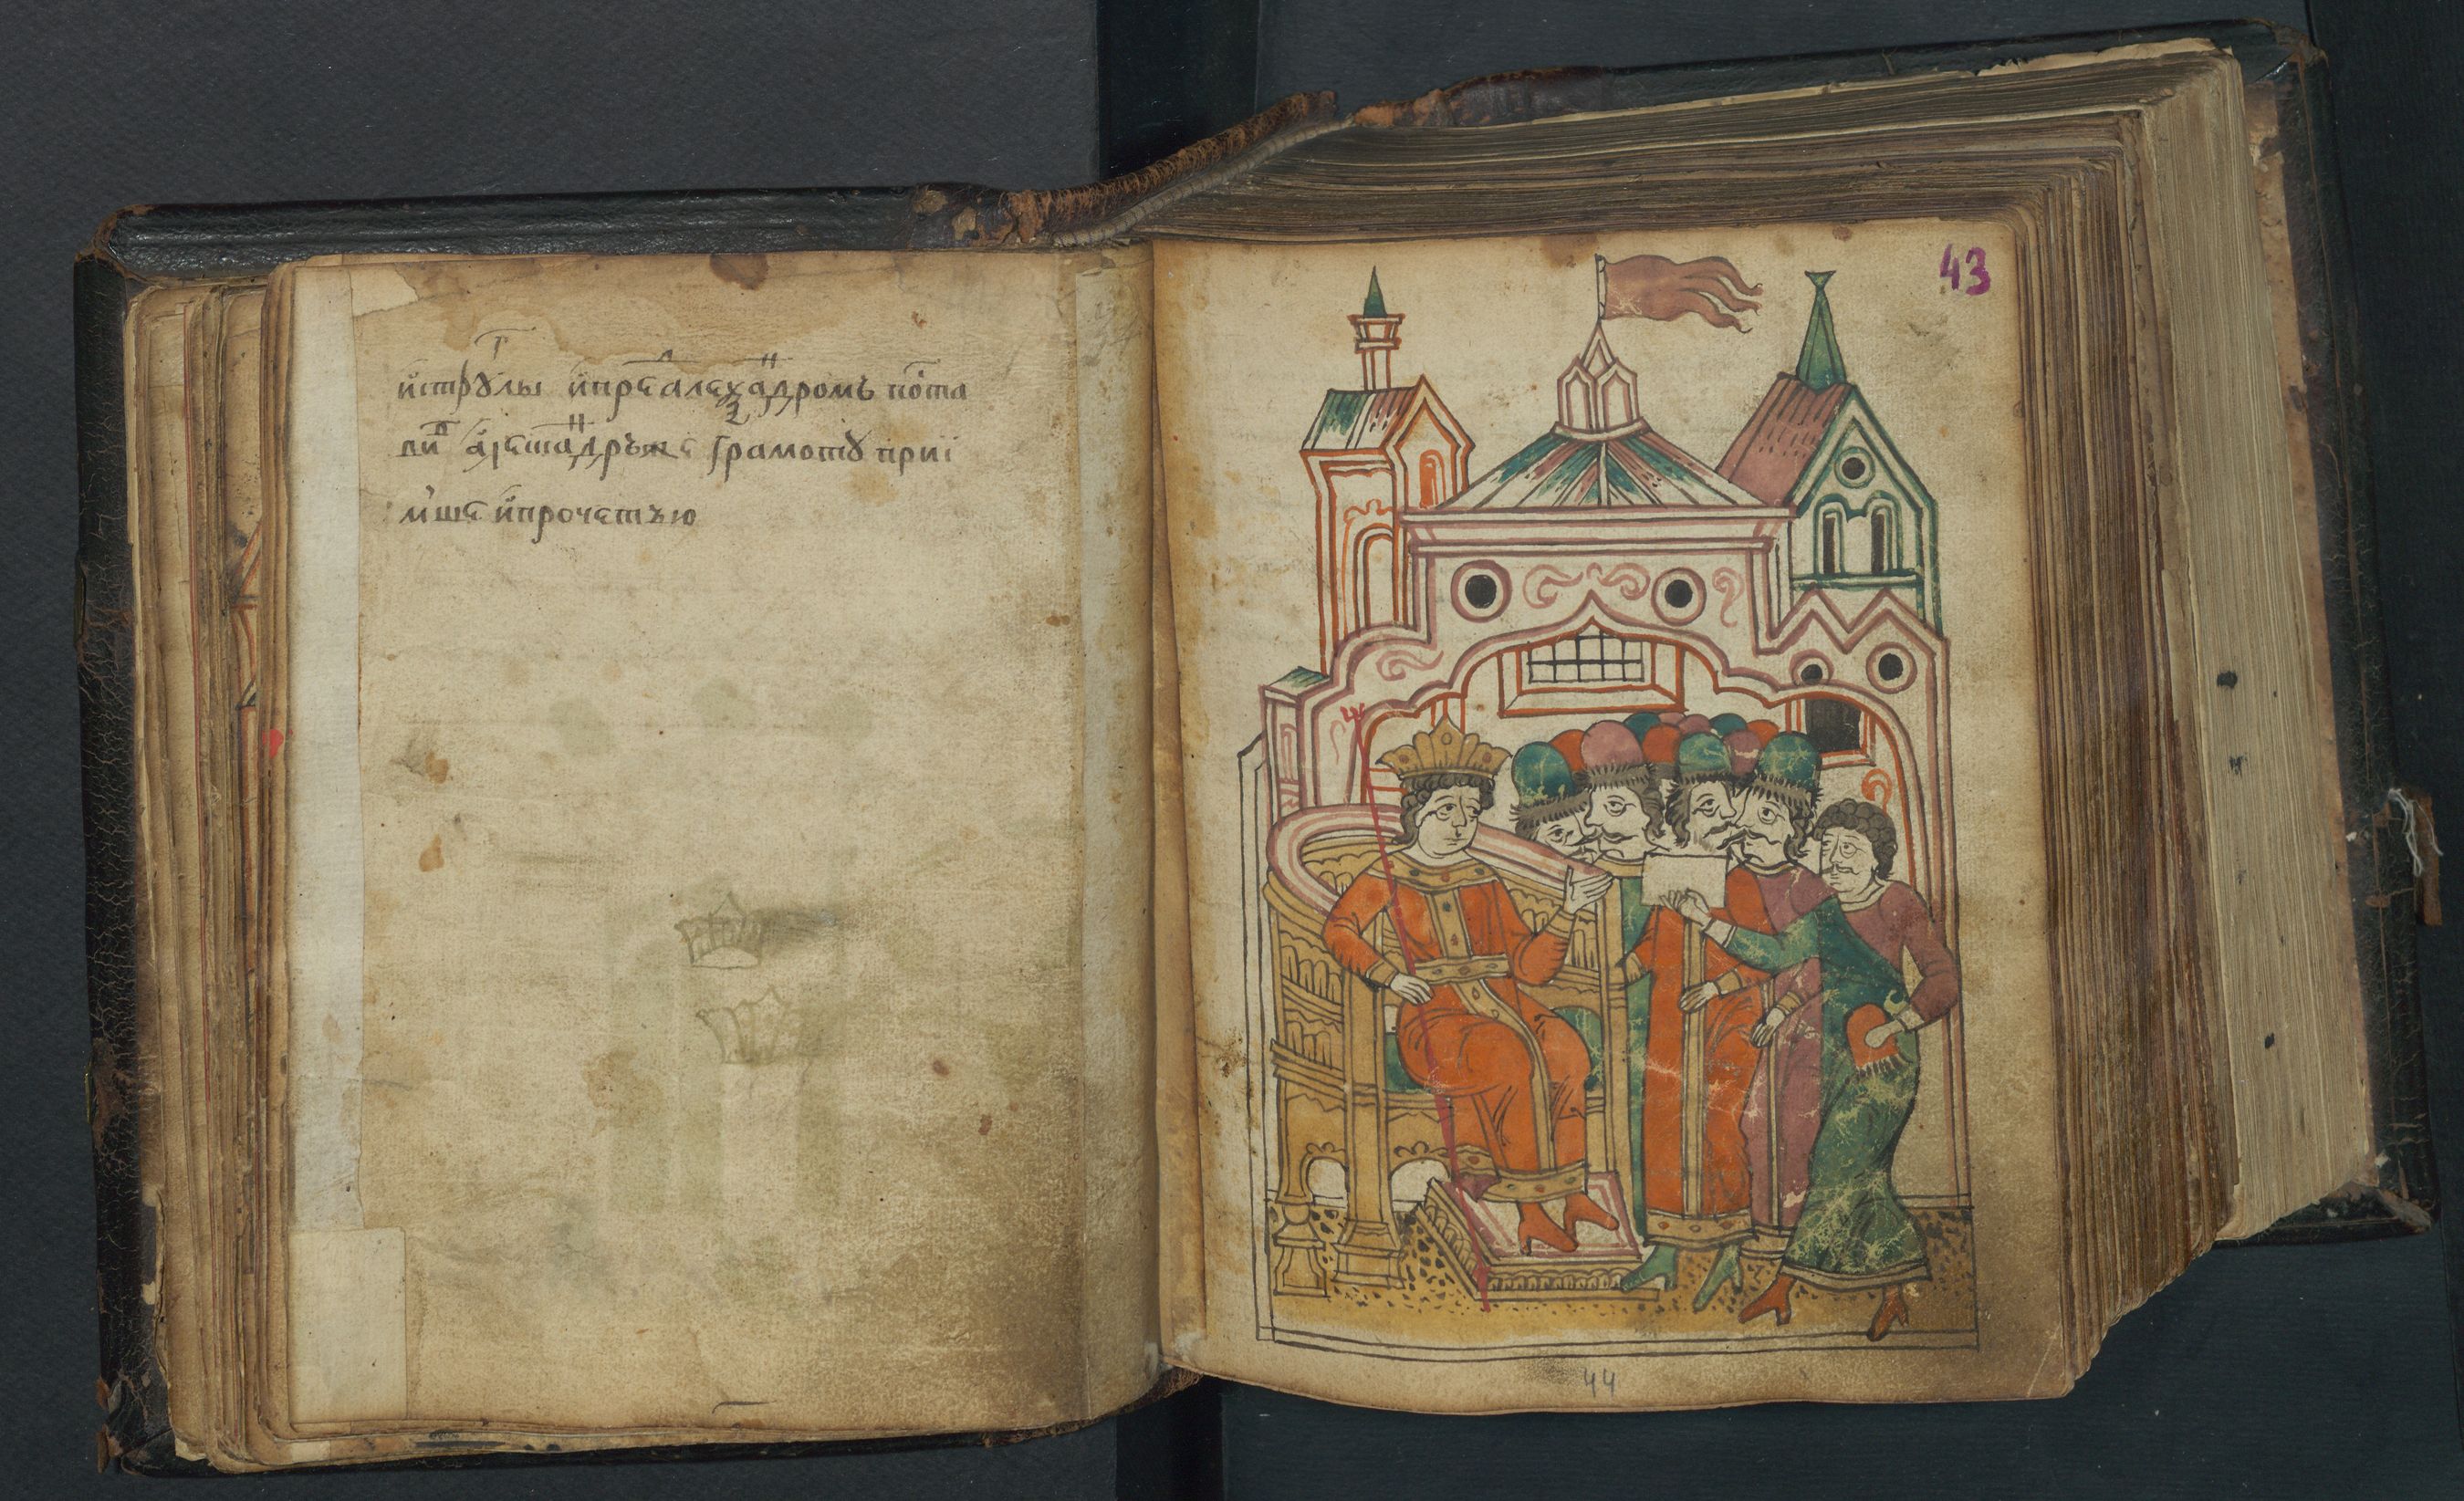 и҆стрꙋлы и҆преⷣалеꙁаⷩдромъ поста
ви а҆леѯаⷩдръже грамотꙋ прии
мше и҆прочетъю
43
44